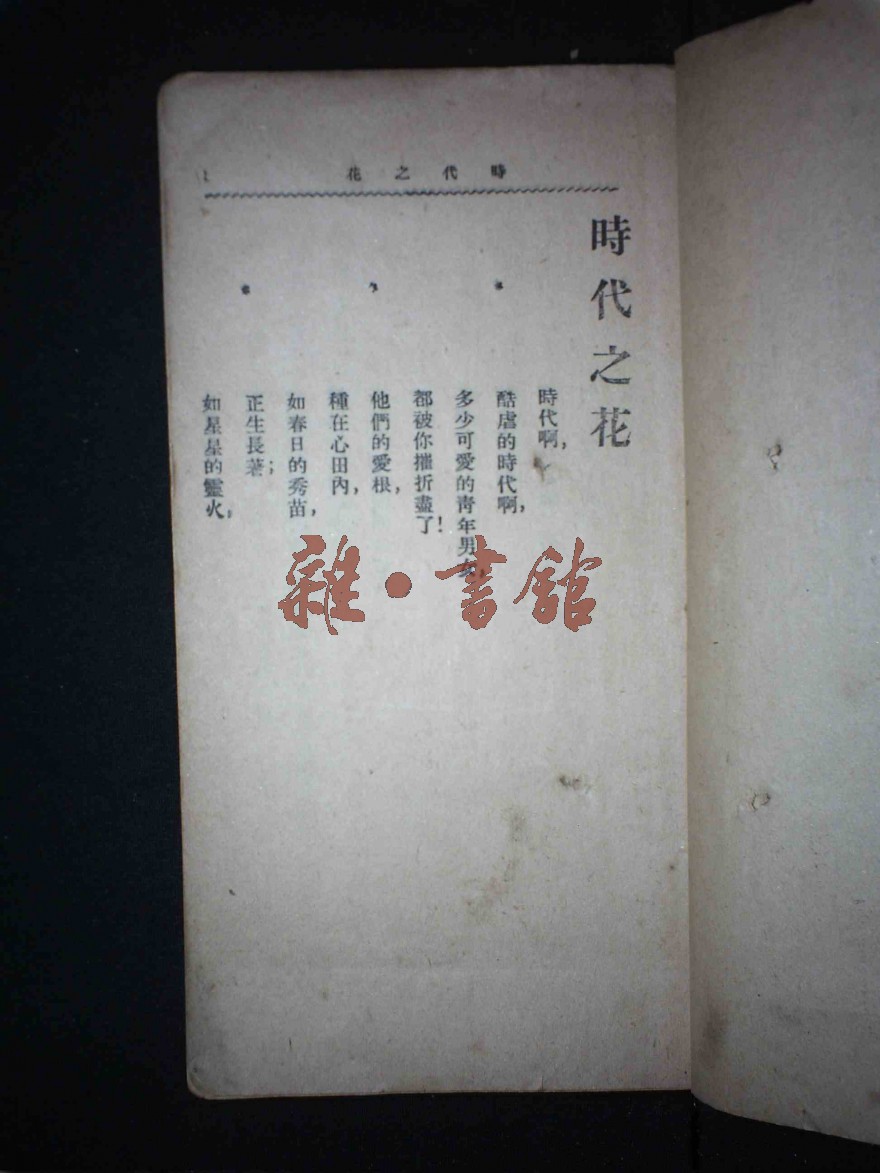 時代之花
1
時代之花
時代啊,
酷虐的時代啊,
多少可愛的靑年男女,
都被你摧折盡了!
他們的愛根,
種在心田內,
如春日的秀苗,
正生長著;
如星星的靈火,
雜·書館